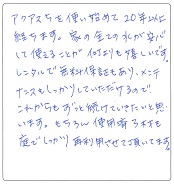 アクアスを使い始めて20年以上
経ちます。家の全ての水が安心
して使えることが何よりも嬉しいです。
レンタルで無料保証もあり、メンテ
ナスもしっかりしていただけるので
これからもずっと続けていきたいと思
います。もちろん使用済ろ材も
庭でしっかり再利用させて頂いてます。